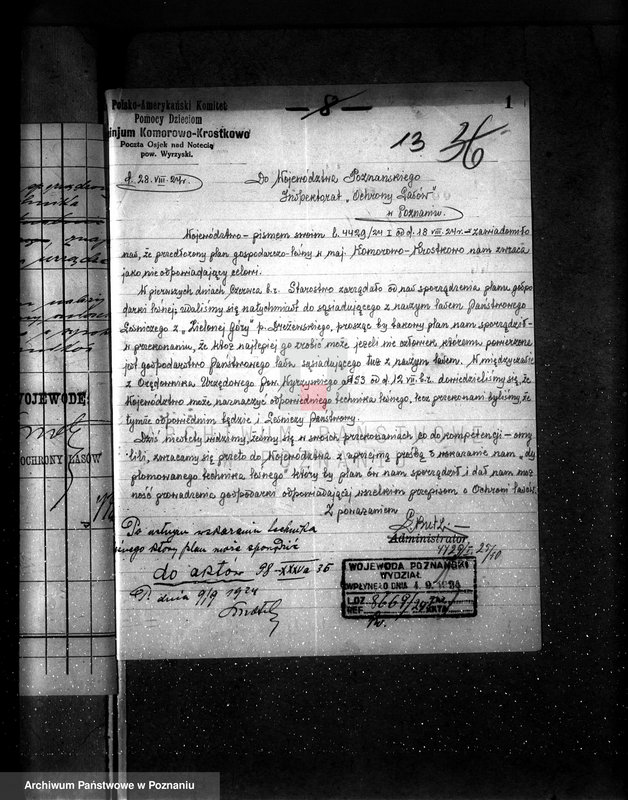 Polsko-Amerykański Komitet
Pomocy Dzieciom
Komorowo-Krostkowo
Poczta Osjek nad Notecią
pow. Wyrzyski.
- 8 -
1
13 36
d. 28. VIII. 24 r.
Do Województwa Poznańskiego
Inspektorat „Ochrony Lasów"
w Poznaniu.
Województwo - pismem swoim l. 4429/24 I z d. 18 VIII. 24 r. - zawiadomiło
nas, że przedłożony plan gospodarczo-leśny w maj. Komorowo-Krostkowo nam zwraca
jako nie odpowiadający celowi.
W pierwszych dniach Czerwca b.r. Starostwo zarządało od nas sporządzenia planu gospo-
darki leśnej; udaliśmy się natychmiast do sąsiadującego z naszym lasem Państwowego
Leśniczego z „Zielonej Góry" p. prosząc by takowy plan nam sporządził -
w przekonaniu, że któż najlepiej go zrobić może jeżeli nie człowiek któremu powierzone
jest gospodarstwo Państwowego lasu sąsiadującego tuż z naszym lasem. W międzyczasie
z Orędownika Urzędowego pow. Wyrzyskiego 53 od d. 12 VII. b.r. dowiedzieliśmy się, że
Województwo może naznaczyć odpowiedniego technika leśnego, lecz przekonani byliśmy, że
tymże odpowiednim będzie i Leśniczy Państwowy.
Dziś niestety widzimy, żeśmy się w swoich przekonaniach co do kompetencji - omy-
lili, zwracamy się przeto do Województwa z uprzejmą prośbą o wskazanie nam „dy-
plomowanego technika leśnego" który by plan ów nam sporządził i dał nam moż-
ność prowadzenia gospodarki odpowiadającej wszelkim przepisom o Ochronie lasów.
Z poważaniem
Administrator
4429/I. 25/10
Po wskazania technika
leśnego który plan może sporządzić
do aktów 98-XXXVa 35
P. dnia 9/9 1924
WOJEWODA POZNAŃSKI
WYDZIAŁ
WPŁYNĘŁO DNIA 4. 9. 1924
L.DZ. 8669/24 ZAŁ.
REF. AKTA
WOJEWODĘ:
OCHRONY LASÓW
Archiwum Państwowe w Poznaniu